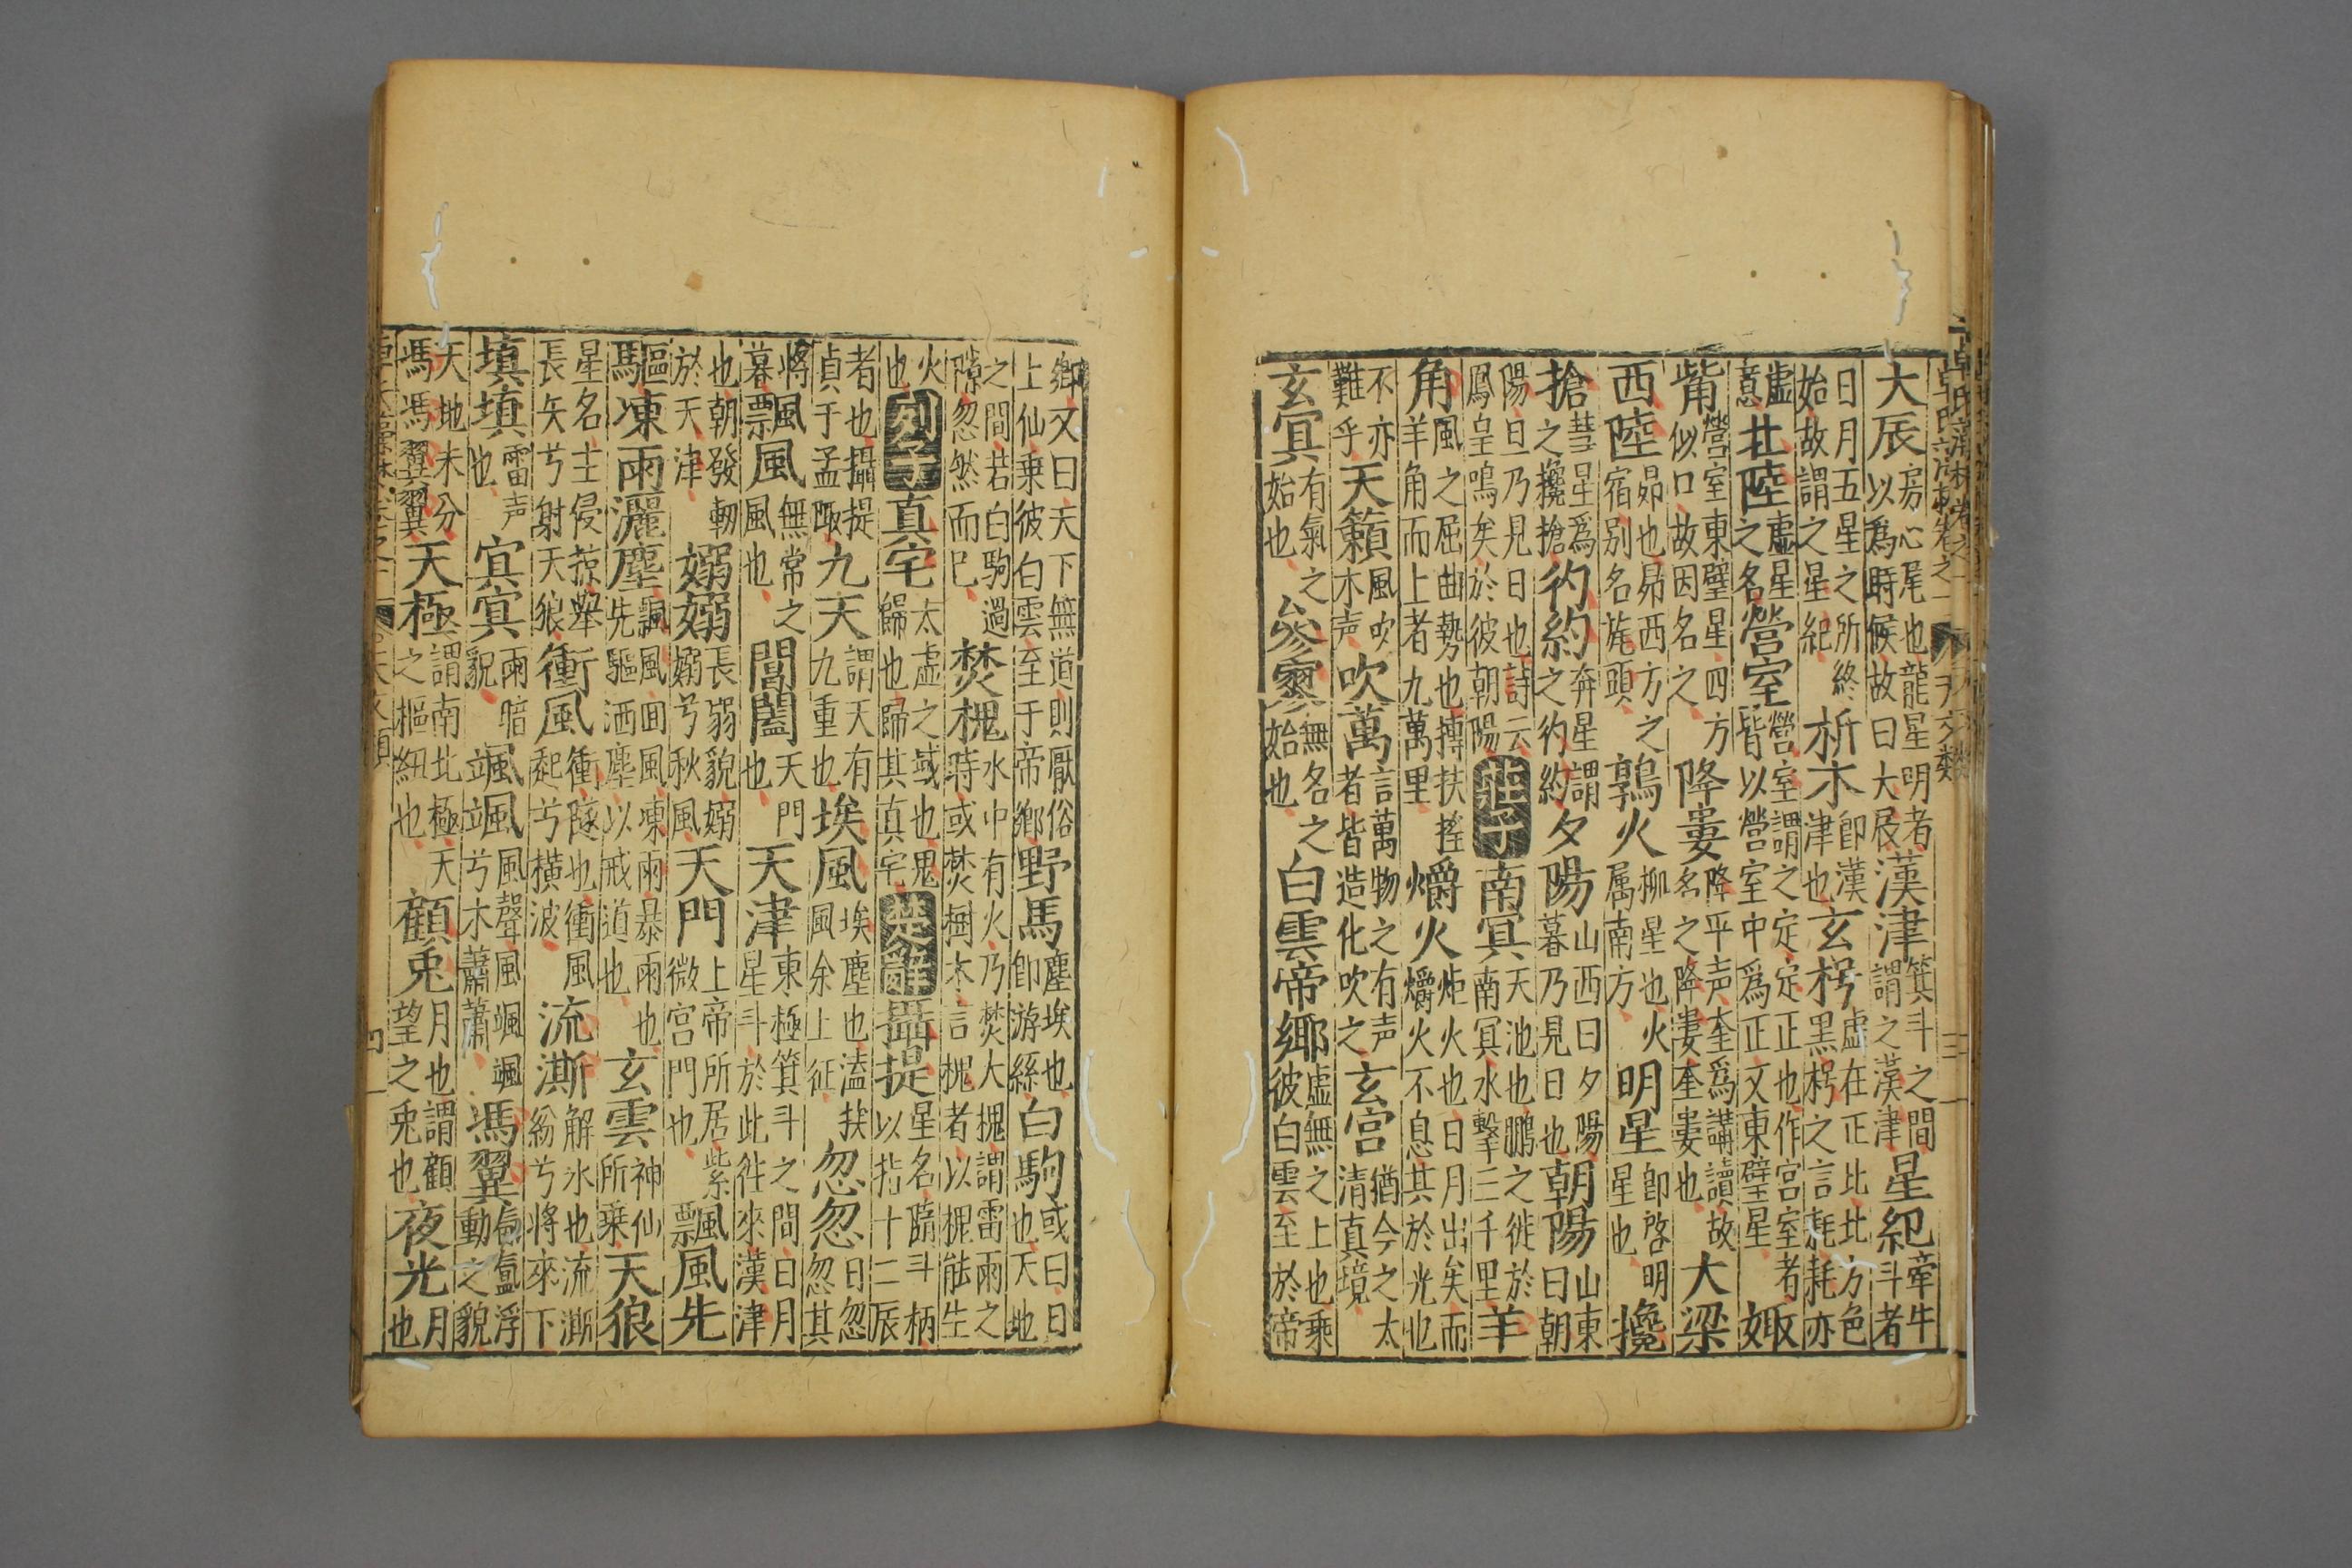 大辰房心尾也龍星明者以爲時候故曰大辰漢津箕斗之間謂之漢津星紀牽牛斗者
日月五星之所終始故謂之星紀析木即漢津也玄枵虛在正北北方色黑枵之言耗耗亦
虛意北陸虛星之名營室營室謂之定定正也作宮室者皆以營室中爲正文東壁星娵
觜營室東壁星四方似口故因名之降婁降平声奎爲講讀故名之降婁奎婁也大梁
西陸昴也昴西方之宿別名旄頭鶉火柳星也火属南方明星即啓明星也攙
搶彗星爲之攙搶彴約奔星謂之彴約夕陽山西曰夕陽暮乃見日也朝陽山東曰朝
陽旦乃見日也詩云鳳皇鳴矣於彼朝陽莊子南冥天池也鵬之徙於南冥水擊三千里羊
角風之屈曲勢也摶扶搖羊角而上者九萬里爝火炬火也日月出矣而爝火不息其於光也
不亦難乎天籟風吹木声吹萬言萬物之有声者皆造化吹之玄宮猶今之太清真境
玄冥有氣之始也參寥無名之始也白雲帝鄉虛無之上也乘彼白雲至於帝
鄉又曰天下無道則厭俗上仙乘彼白雲至于帝鄉野馬塵埃也即游絲白駒或曰日也天地
之間若白駒過隙忽然而已焚槐水中有火乃焚大槐謂雷雨之時或焚樹木言槐者以槐能生
火也列子真宅太虛之域也鬼歸也歸其真宅楚辭攝提星名隨斗柄以指十二辰
者也攝提貞于孟陬九天謂天有九重也埃風埃塵也溘埃風余上征忽忽日忽忽其
將暮飄風無常之風也閶闔天門也天津東極箕斗之間日月星斗於此往來漢津
也朝發軔於天津嫋嫋長弱貌嫋嫋兮秋風天門上帝所居紫微宮門也飄風先
驅凍雨灑塵飄風回風凍雨暴雨也先驅洒塵以戒道也玄雲神仙所乘天狼
星名主侵掠舉長矢兮射天狼衝風衝隧也衝風起兮橫波流澌解氷也流澌紛兮將來下
填填雷声也冥冥雨暗貌颯颯風聲風颯颯兮木蕭蕭馮翼氤氳浮動之貌
天地未分馮馮翼翼天極謂南北極天之樞紐也顧兎月也謂顧望之兎也夜光月也